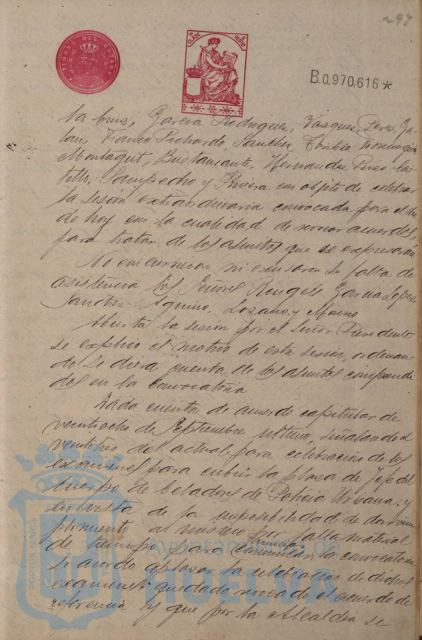 297
B.0.970.616*
la Cruz, Garcia Rodriguez, Vazquez Perez, Ga-
lan, Franco Pichardo, Sanchez Toribio Dominguez
Montagut, Bustamante, Hernandez Pinzo Cas-
tillo, Sampedro y Rivera con objeto de celebrar
la sesion extraordinaria convocada para el dia
de hoy con la cualidad de sacar acuerdos
para tratar de los asuntos que se expresarán
No concurrieron ni excusaron la falta de
asistencia los Señores Rengel Garcia Lopez
Sanchez Aquino, Lozano y Moreno
Abierta la sesion por el Señor Presidente
se explicó el motivo de esta sesion, ordenan-
do se diera cuenta de los asuntos comprendi-
dos en la Convocatoria
Dada cuenta de acuerdo capitular de
veintiocho de Septiembre ultimo, señalando el
veintitres del actual para celebracion de los
examenes para cubrir la plaza de Jefe del
Cuerpo de Celadores de Policia Urbana; y
en vista de la imposibilidad de dar cum-
plimiento al mismo por falta material
de tiempo para la convocatoria
se acordó aplazar la celebracion de dichos
examenes quedando el acuerdo de
referencia y que por la Alcaldia se
Ayuntamiento de
HUELVA